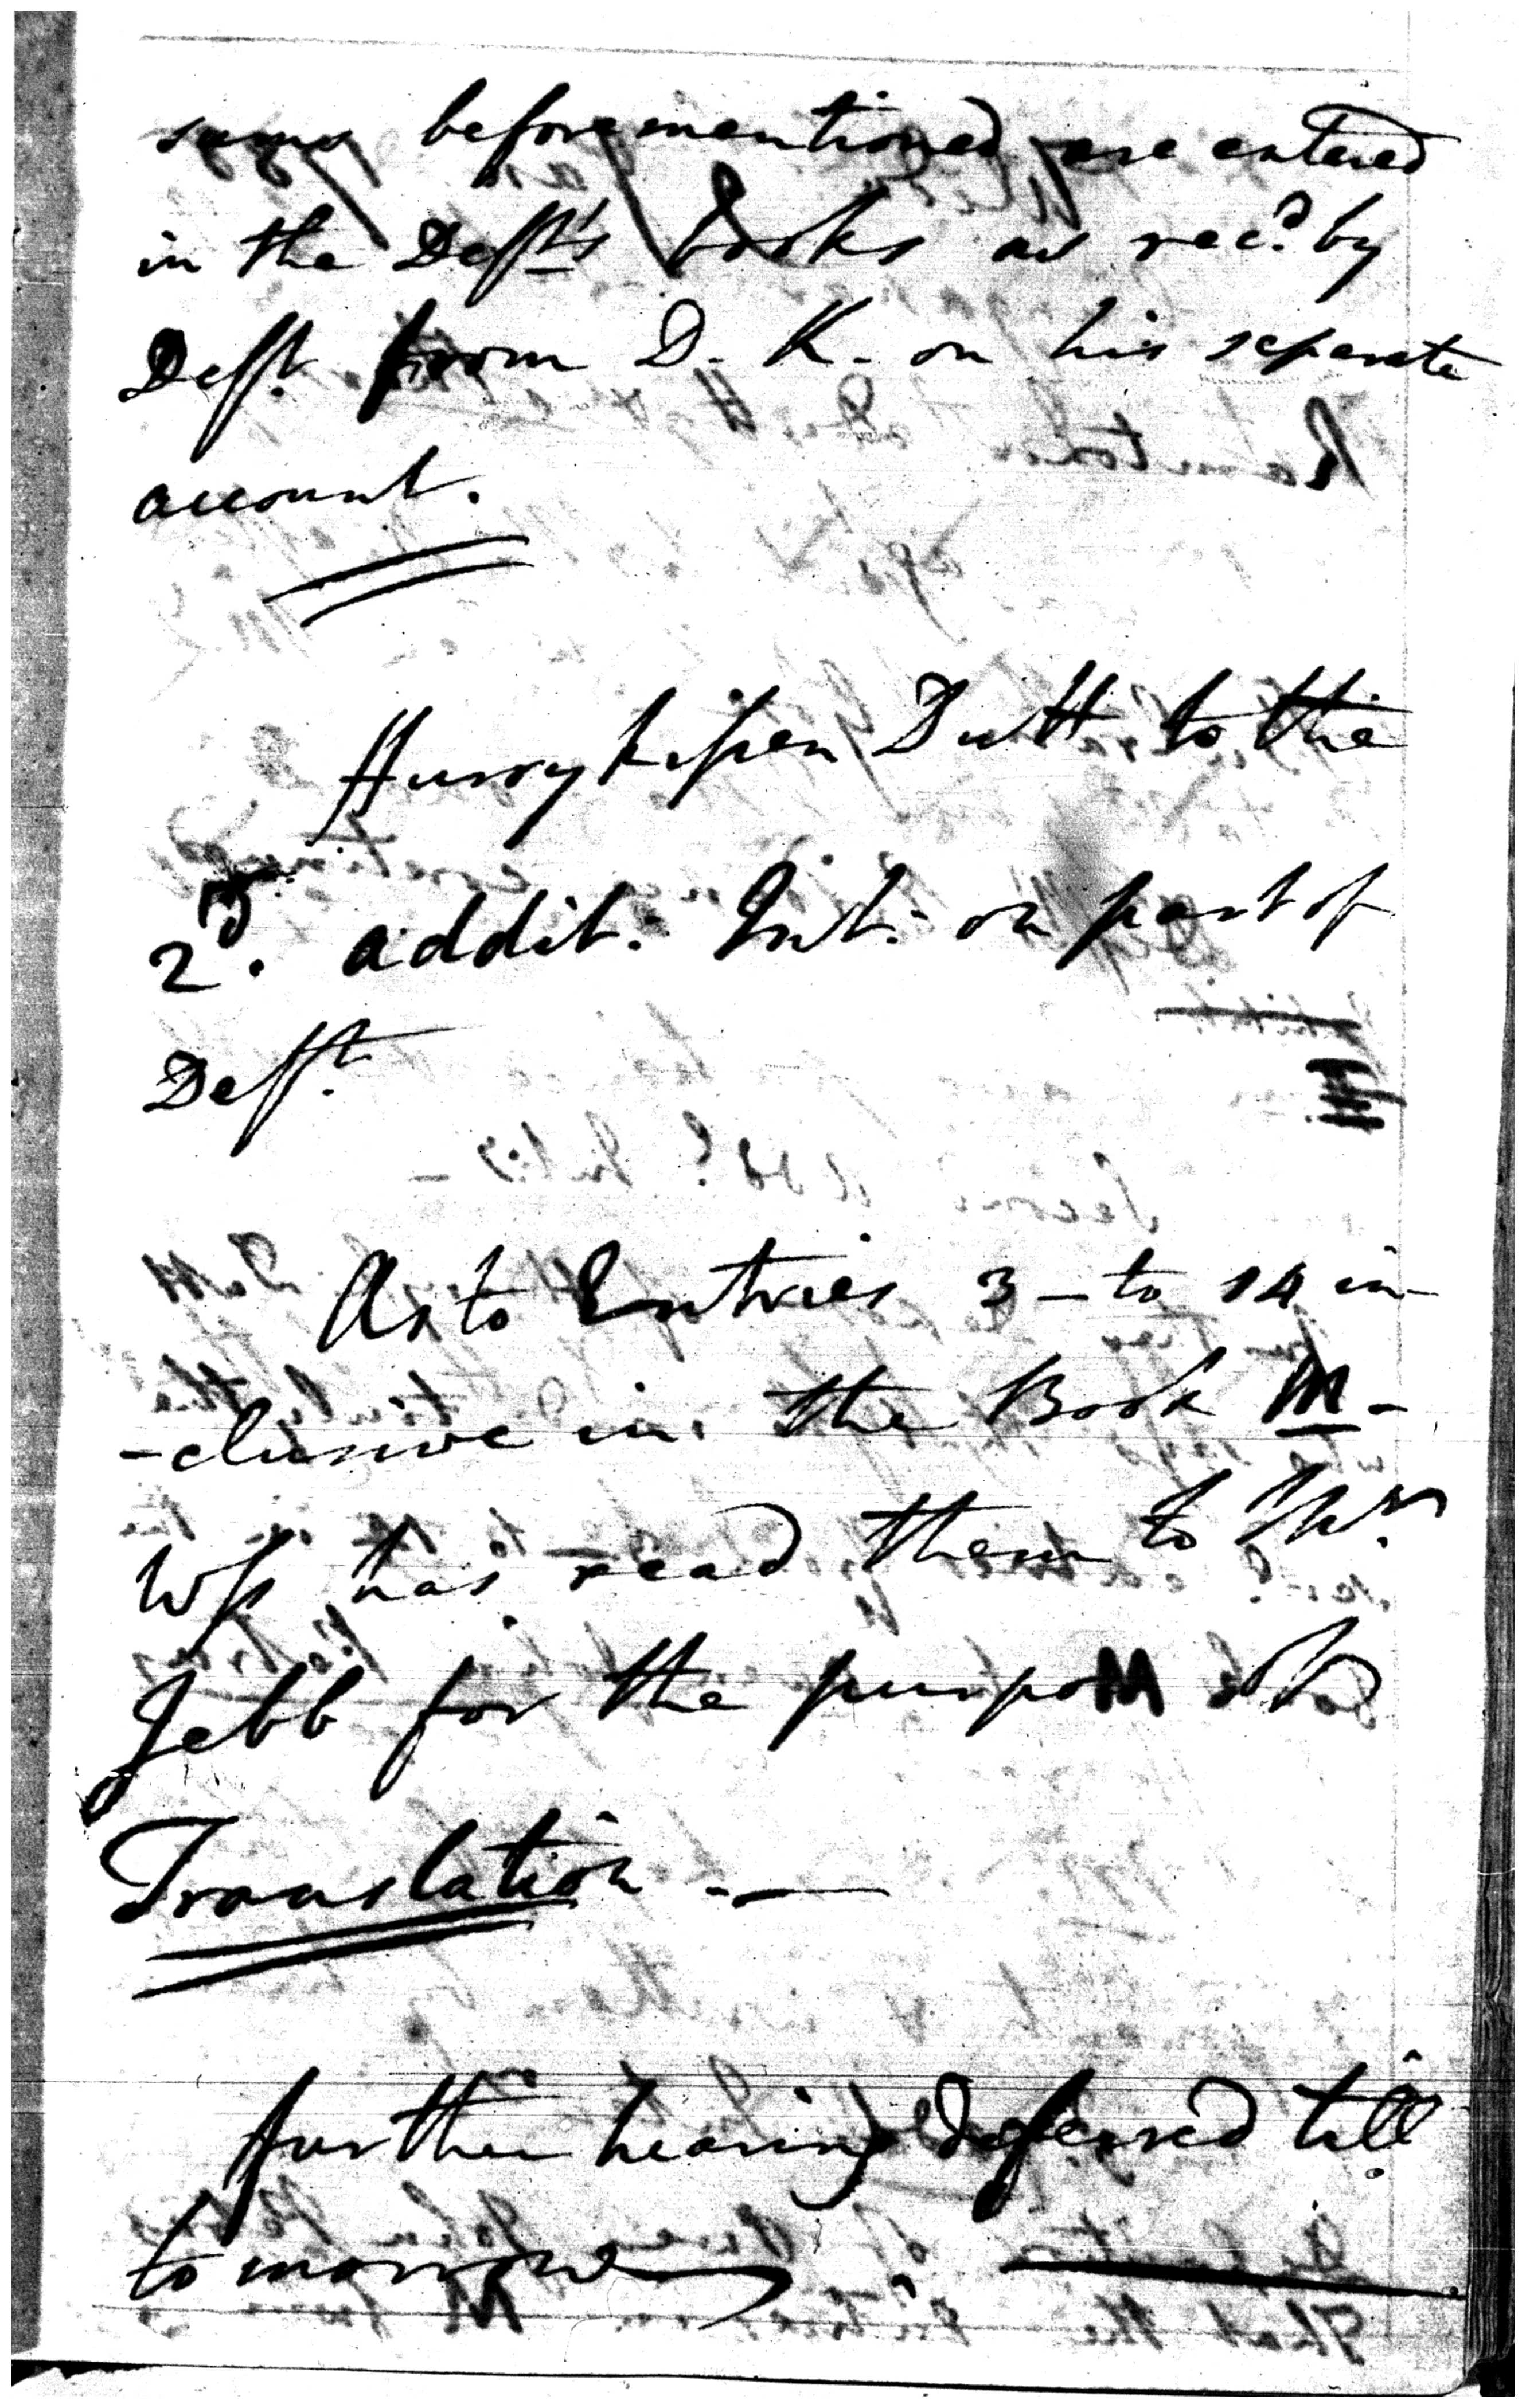 sums beforementioned are entered
in the Defts books as rec.d by
Deft. from D. K. on his separate
account.
Hurrykissen Dutt to the
2d. addit. Int. on part of
Deft.
As to Entries 3 - to 14 in-
-clusive in the Book M -
Wss has read them to Mr.
Jebb for the purpose of
Translation . —
further hearing deferred till
to morrow